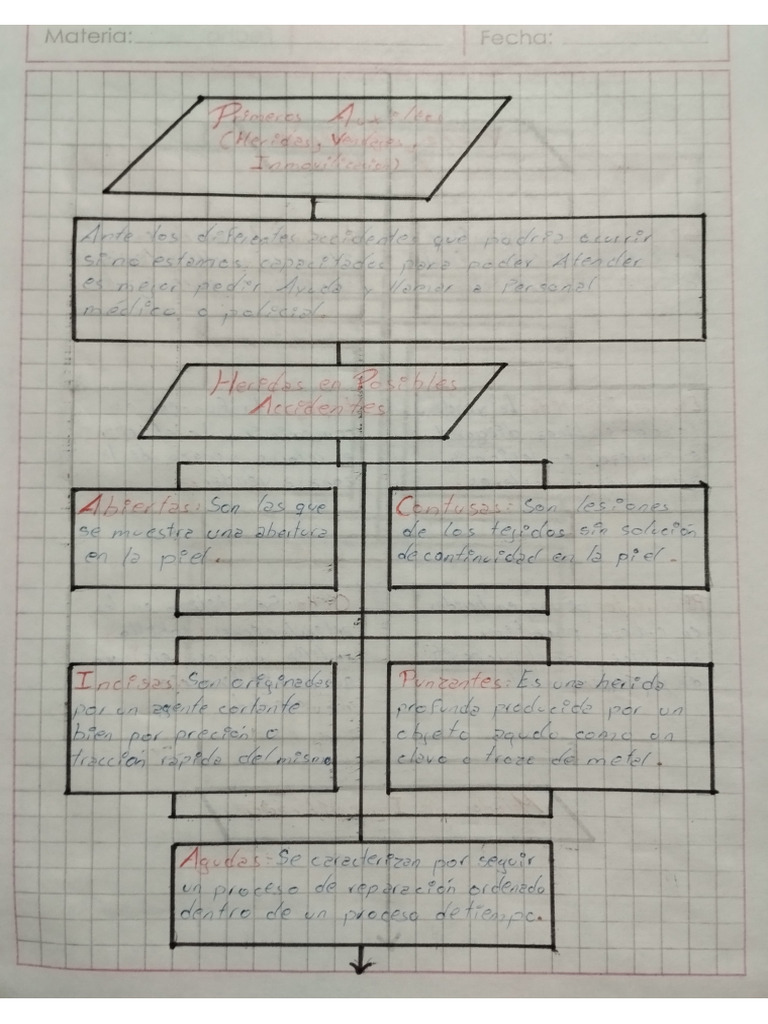 Materia: Fecha:
Primeros Auxilios
(Heridas, Vendajes,
Inmovilizacion)
Ante los diferentes accidentes que podria ocurrir
si no estamos capacitados para poder Atender
es mejor pedir Ayuda y llamar a Personal
médico o policial.
Heridas en Posibles
Accidentes
Abiertas: Son las que
se muestra una abertura
en la piel.
Contusas: Son lesiones
de los tejidos sin solución
de continuidad en la piel.
Incisas: Son originadas
por un agente cortante
bien por preción o
tracción rápida del mismo
Punzantes: Es una herida
profunda producida por un
objeto agudo como un
clavo o trozo de metal.
Agudas: Se caracterizan por seguir
un proceso de reparación ordenado
dentro de un proceso de tiempo.